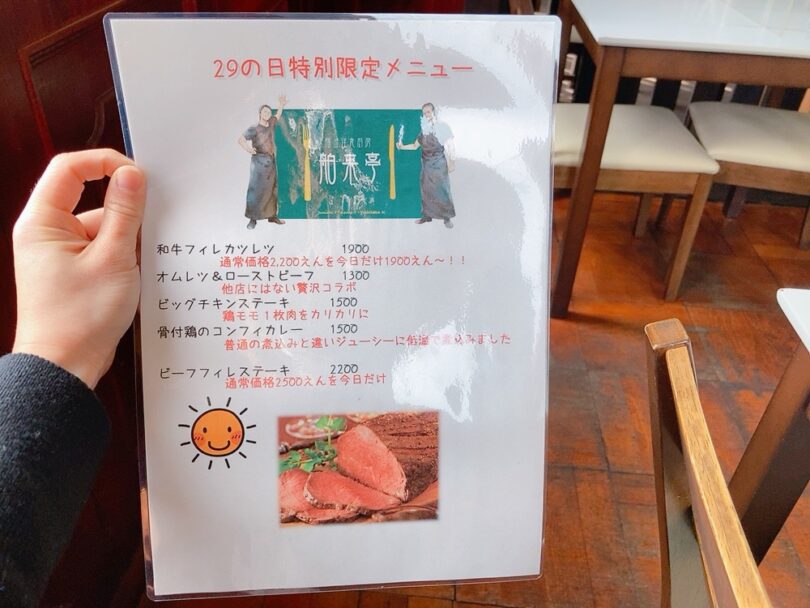 29の日特別限定メニュー
舶来亭
和牛フィレカツレツ 1900
通常価格2,200えんを今日だけ1900えん～！！
オムレツ＆ローストビーフ 1300
他店にはない贅沢コラボ
ビッグチキンステーキ 1500
鶏モモ１枚肉をカリカリに
骨付鶏のコンフィカレー 1500
普通の煮込みと違いジューシーに低温で煮込みました
ビーフフィレステーキ 2200
通常価格2500えんを今日だけ